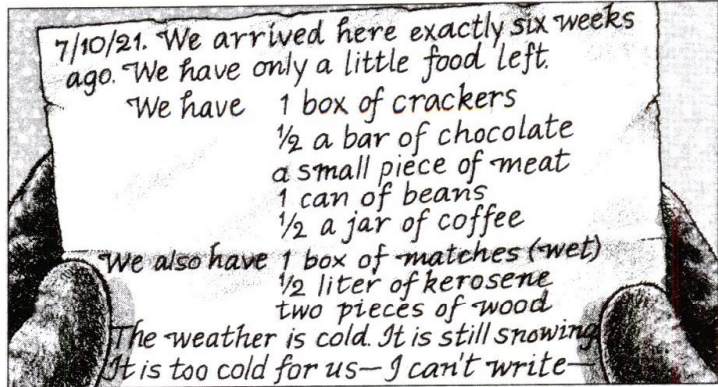 7/10/21. We arrived here exactly six weeks
ago. We have only a little food left.
We have 1 box of crackers
½ a bar of chocolate
a small piece of meat
1 can of beans
½ a jar of coffee
We also have 1 box of matches (wet)
½ liter of kerosene
two pieces of wood
The weather is cold. It is still snowing
It is too cold for us— I can't write—